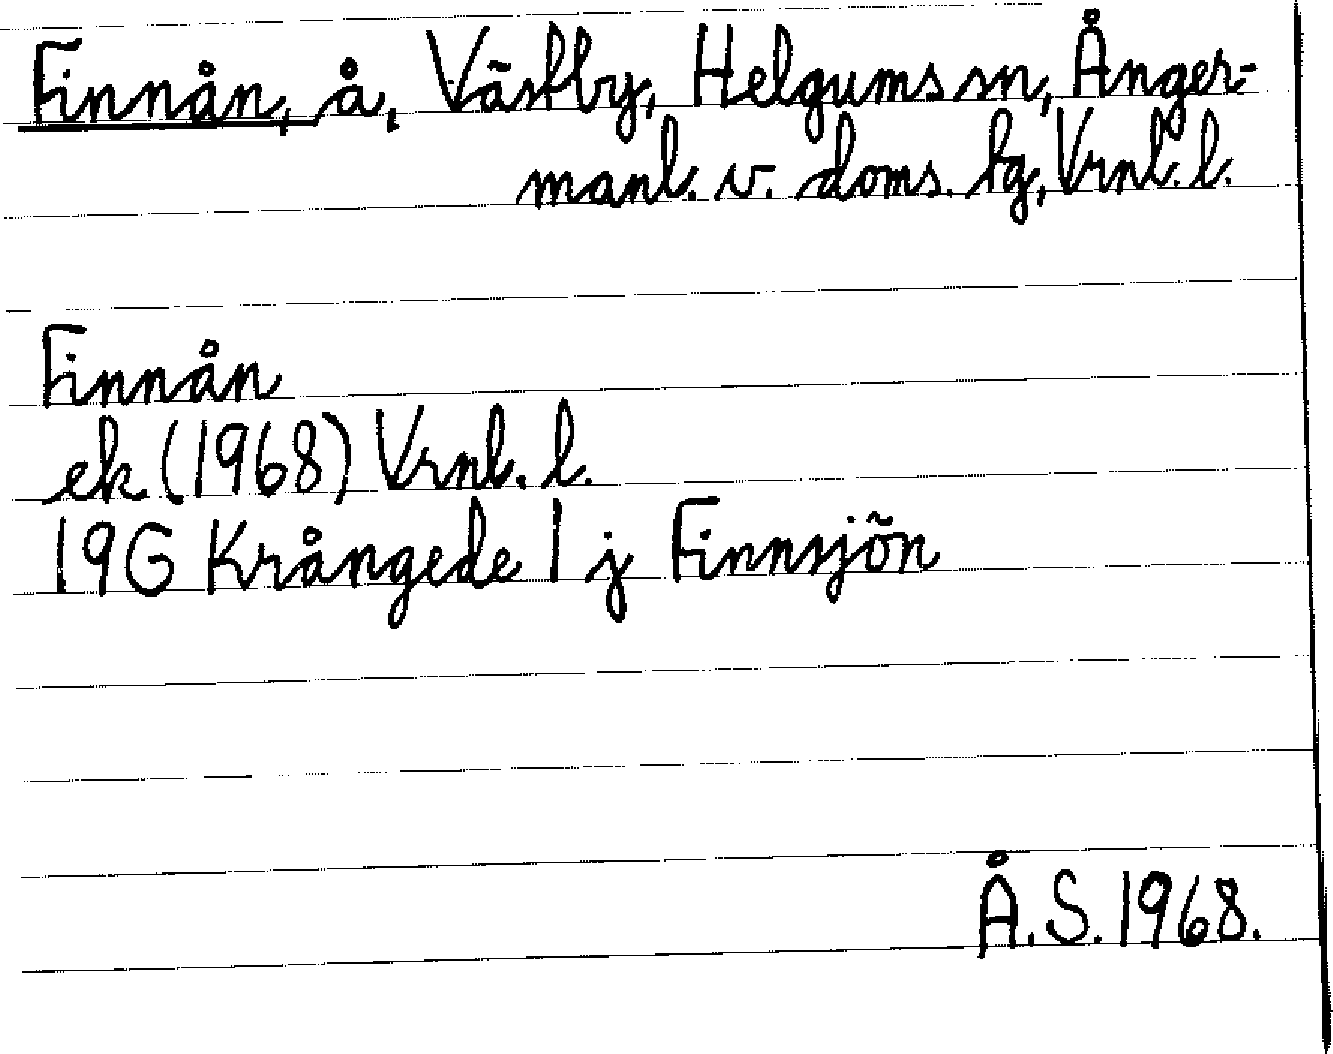 Finnån, å, Västby, Helgums sn, Ånger-
manl. v. doms. lg, Vrnl. l.
Finnån
ek (1968) Vrnl. l.
19G Krångede 1 j Finnsjön
Å.S. 1968.